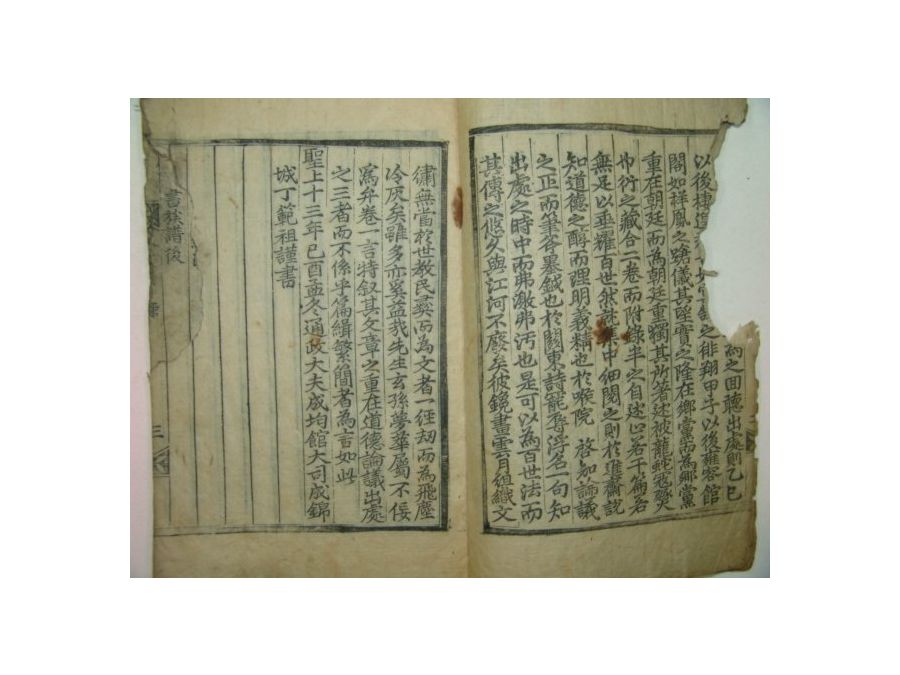 納之回聽出處則乙巳
以後棲 之徘翔甲子以後雍容館
閣如祥鳳之蹌儀其望實之隆在鄉黨而為鄉黨
重在朝廷而為朝廷重獨其所著述被龍蛇寇燹失
巾衍之藏合二卷而附錄半之自述心若干篇名
無足以垂耀百世然就集中細閱之則於進齋說
知道德之醇而理明義精也於喉院啓知論議
之正而筆谷墨鉞也於關東詩寵辱浮名一句知
出處之時中而弗激弗汚也是可以為百世法而
其傳之悠久與江河不廢矣彼鏡畫雲月組織文
繡無當於世教民彝而為文者一經刼而為飛塵
冷灰矣雖多亦奚益哉先生玄孫夢華屬不佞
爲弁卷一言特叙其文章之重在道德論議出處
之三者而不係乎篇緝繁簡者為言如此
聖上十三年己酉孟冬通政大夫成均館大司成錦
城丁範祖謹書
書族譜後
三